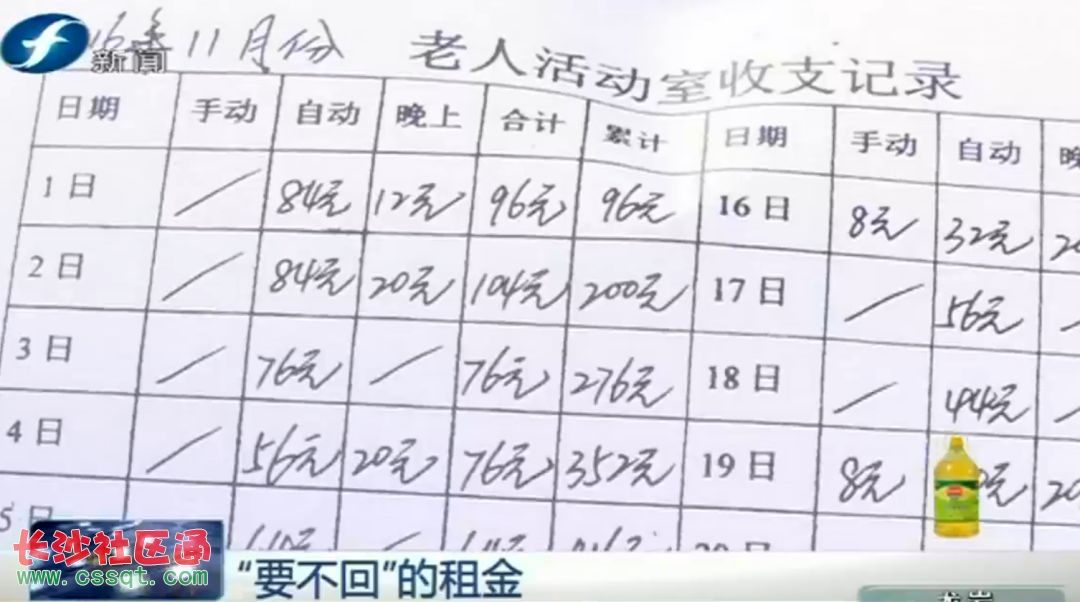 新闻
16年11月份 老人活动室收支记录
日期 手动 自动 晚上 合计 累计 日期 手动 自动
1日 / 84元 12元 96元 96元 16日 8元 32元
2日 / 84元 20元 104元 200元 17日 / 56元
3日 / 76元 / 76元 276元 18日 / 44元
4日 / 56元 20元 76元 352元 19日 8元
5日
长沙社区通
www.cssqt.com
“要不回”的租金